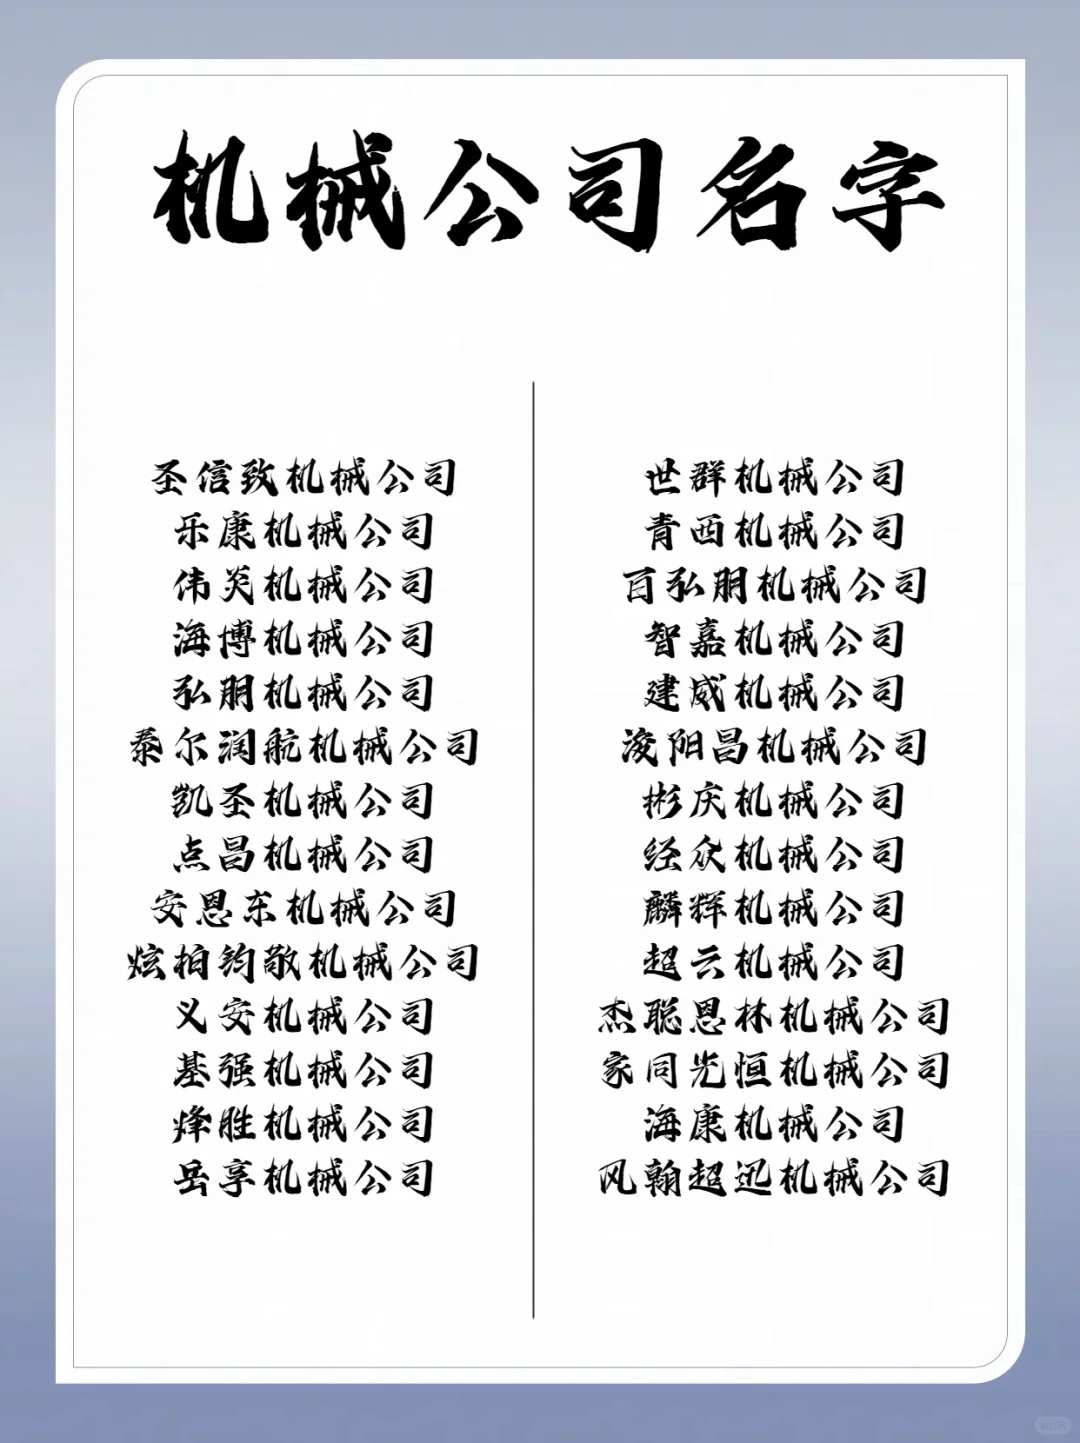 机械公司名字
圣信致机械公司
乐康机械公司
伟炎机械公司
海博机械公司
弘朋机械公司
泰尔润航机械公司
凯圣机械公司
点昌机械公司
安恩东机械公司
炫柏钧敬机械公司
义安机械公司
基强机械公司
烽胜机械公司
岳享机械公司
世群机械公司
青西机械公司
百弘朋机械公司
智嘉机械公司
建威机械公司
浚阳昌机械公司
彬庆机械公司
经众机械公司
麟辉机械公司
超云机械公司
杰聪恩林机械公司
家同光恒机械公司
海康机械公司
风翰超迅机械公司